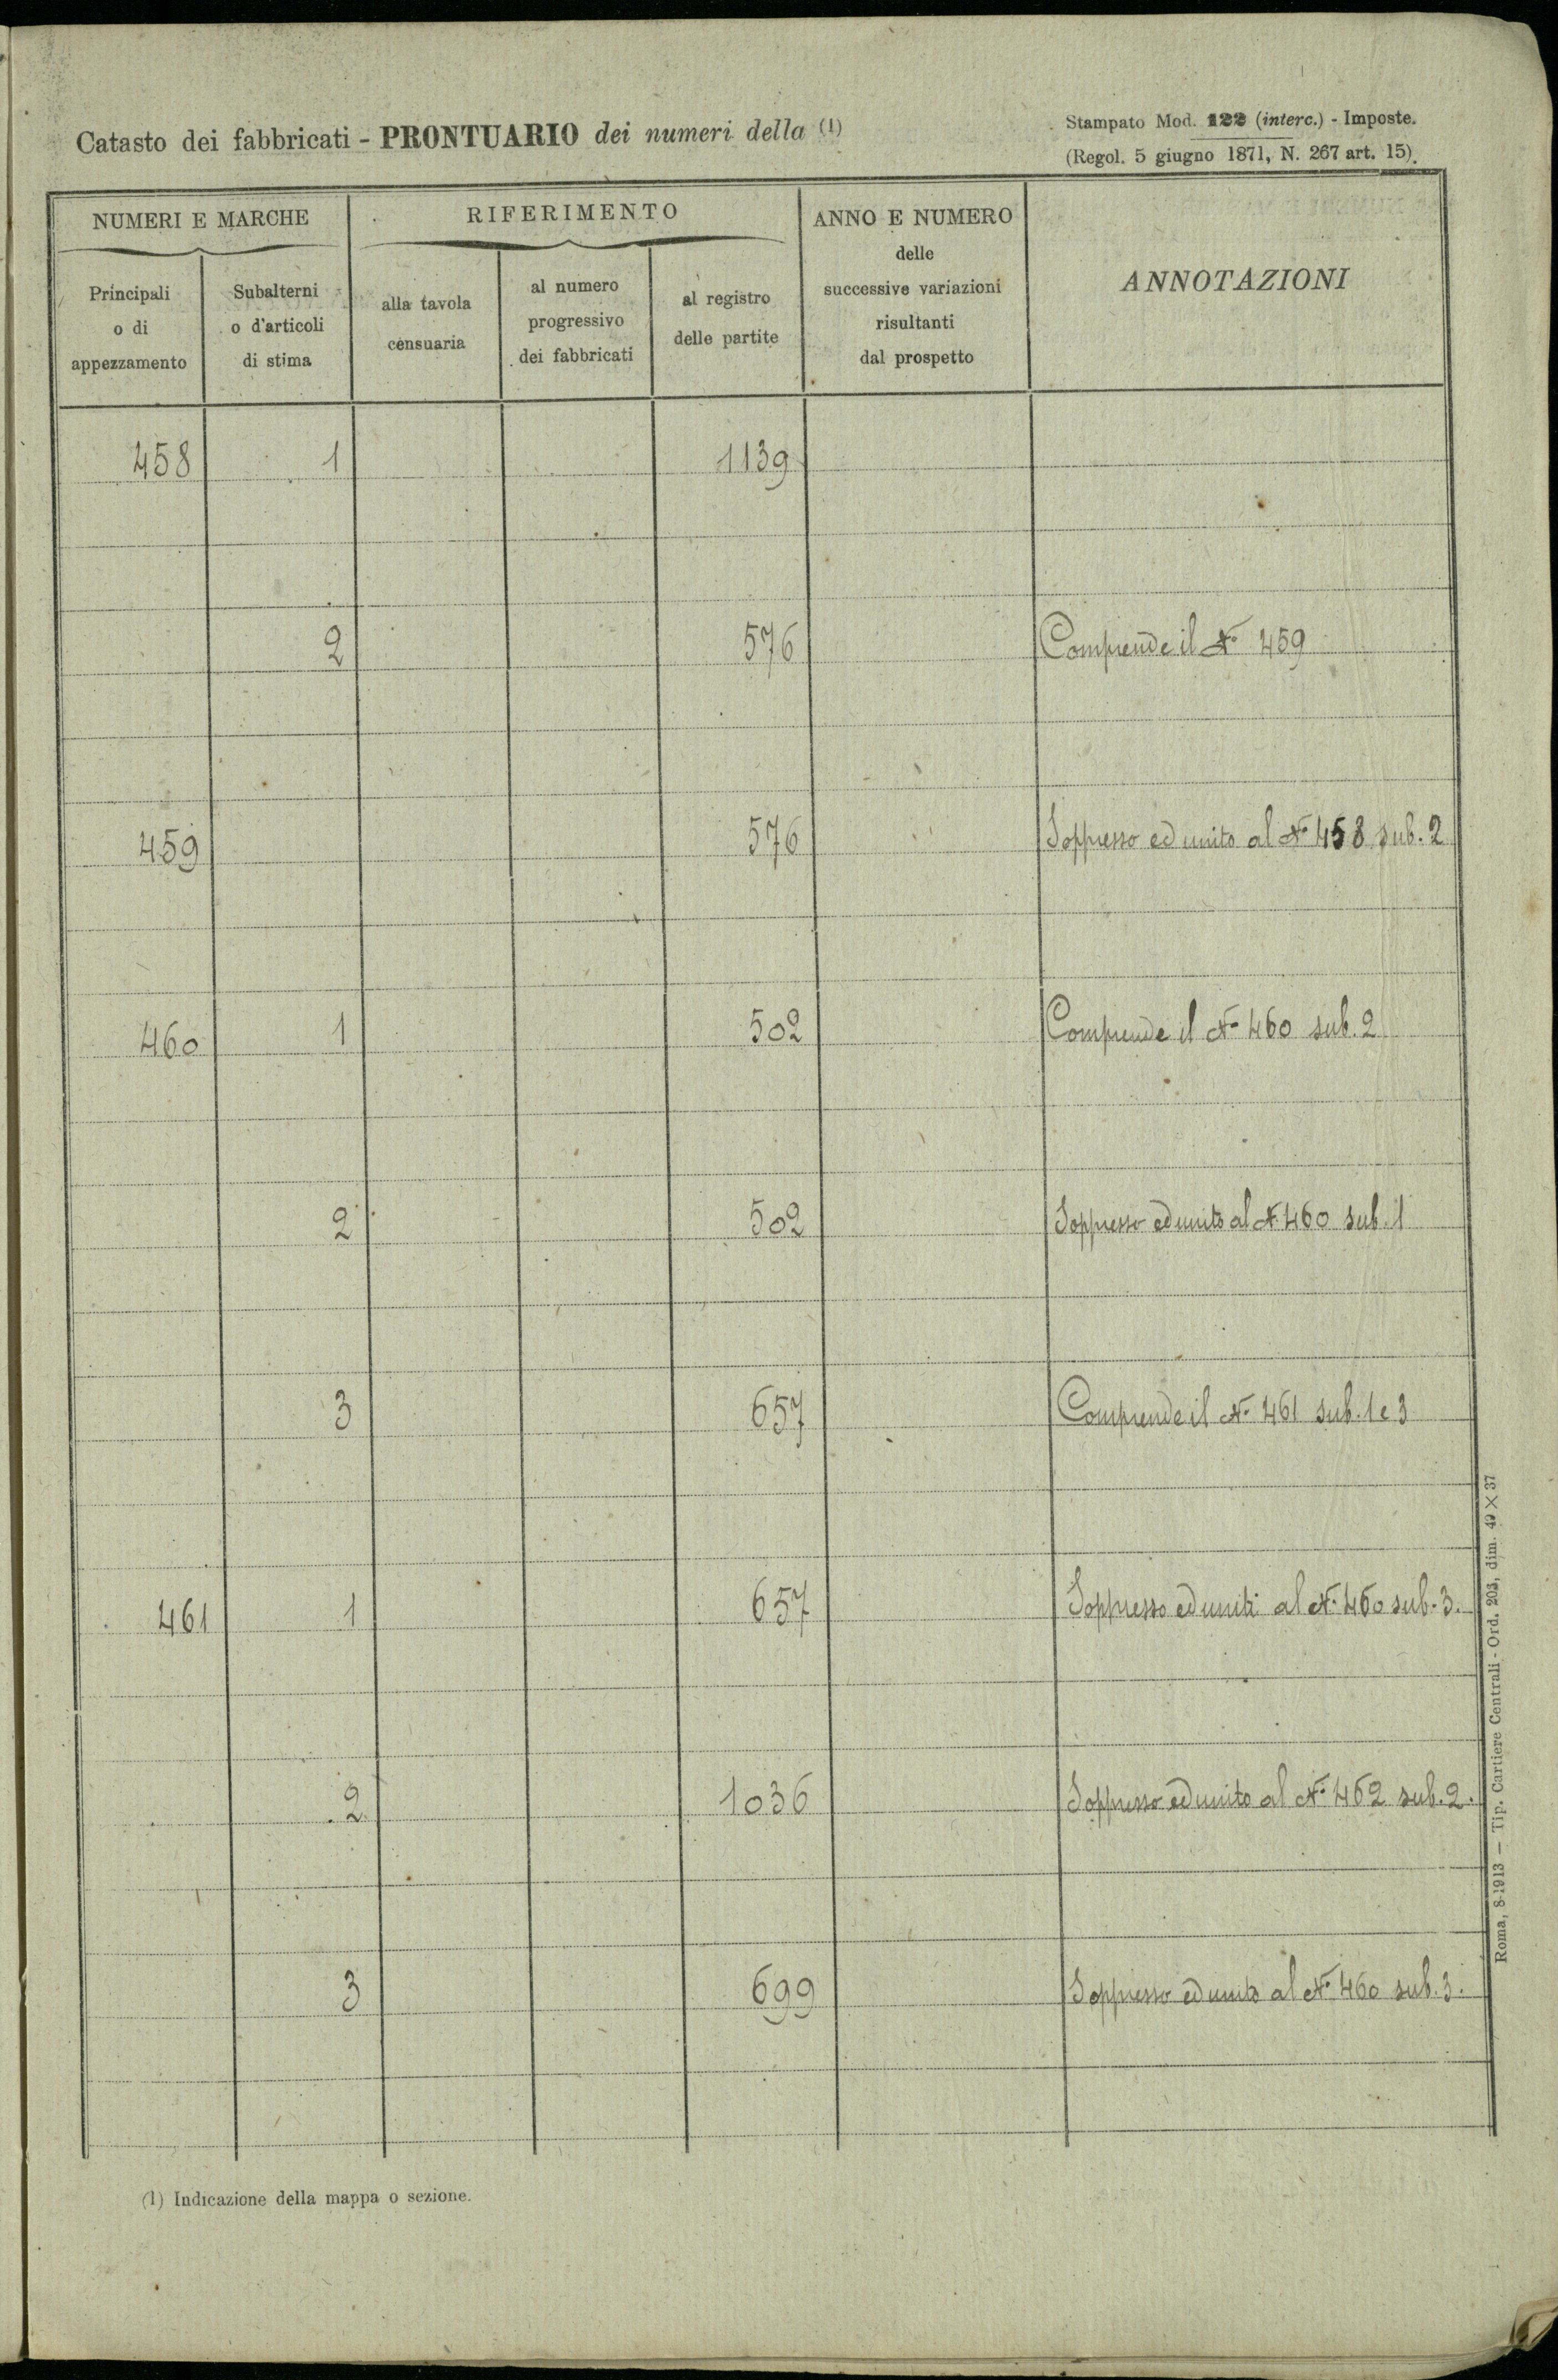 Catasto dei fabbricati - PRONTUARIO dei numeri della (1)
Stampato Mod. 122 (interc.) - Imposte.
(Regol. 5 giugno 1871, N. 267 art. 15).
NUMERI E MARCHE
RIFERIMENTO
ANNO E NUMERO
delle
successive variazioni
risultanti
dal prospetto
ANNOTAZIONI
Principali
o di
appezzamento
Subalterni
o d'articoli
di stima
alla tavola
censuaria
al numero
progressivo
dei fabbricati
al registro
delle partite
458 1 1139
2 576 Comprende il N. 459
459 576 Soppresso ed unito al N. 458 sub. 2
460 1 502 Comprende il N. 460 sub. 2
2 502 Soppresso ed unito al N. 460 sub. 1
3 657 Comprende il N. 461 sub. 1 e 3
461 1 657 Soppresso ed uniti al N. 460 sub. 3.
2 1036 Soppresso ed unito al N. 462 sub. 2.
3 699 Soppresso ed unito al N. 460 sub. 3.
(1) Indicazione della mappa o sezione.
Roma, 8-1913 — Tip. Cartiere Centrali - Ord. 203, dim. 49 × 37